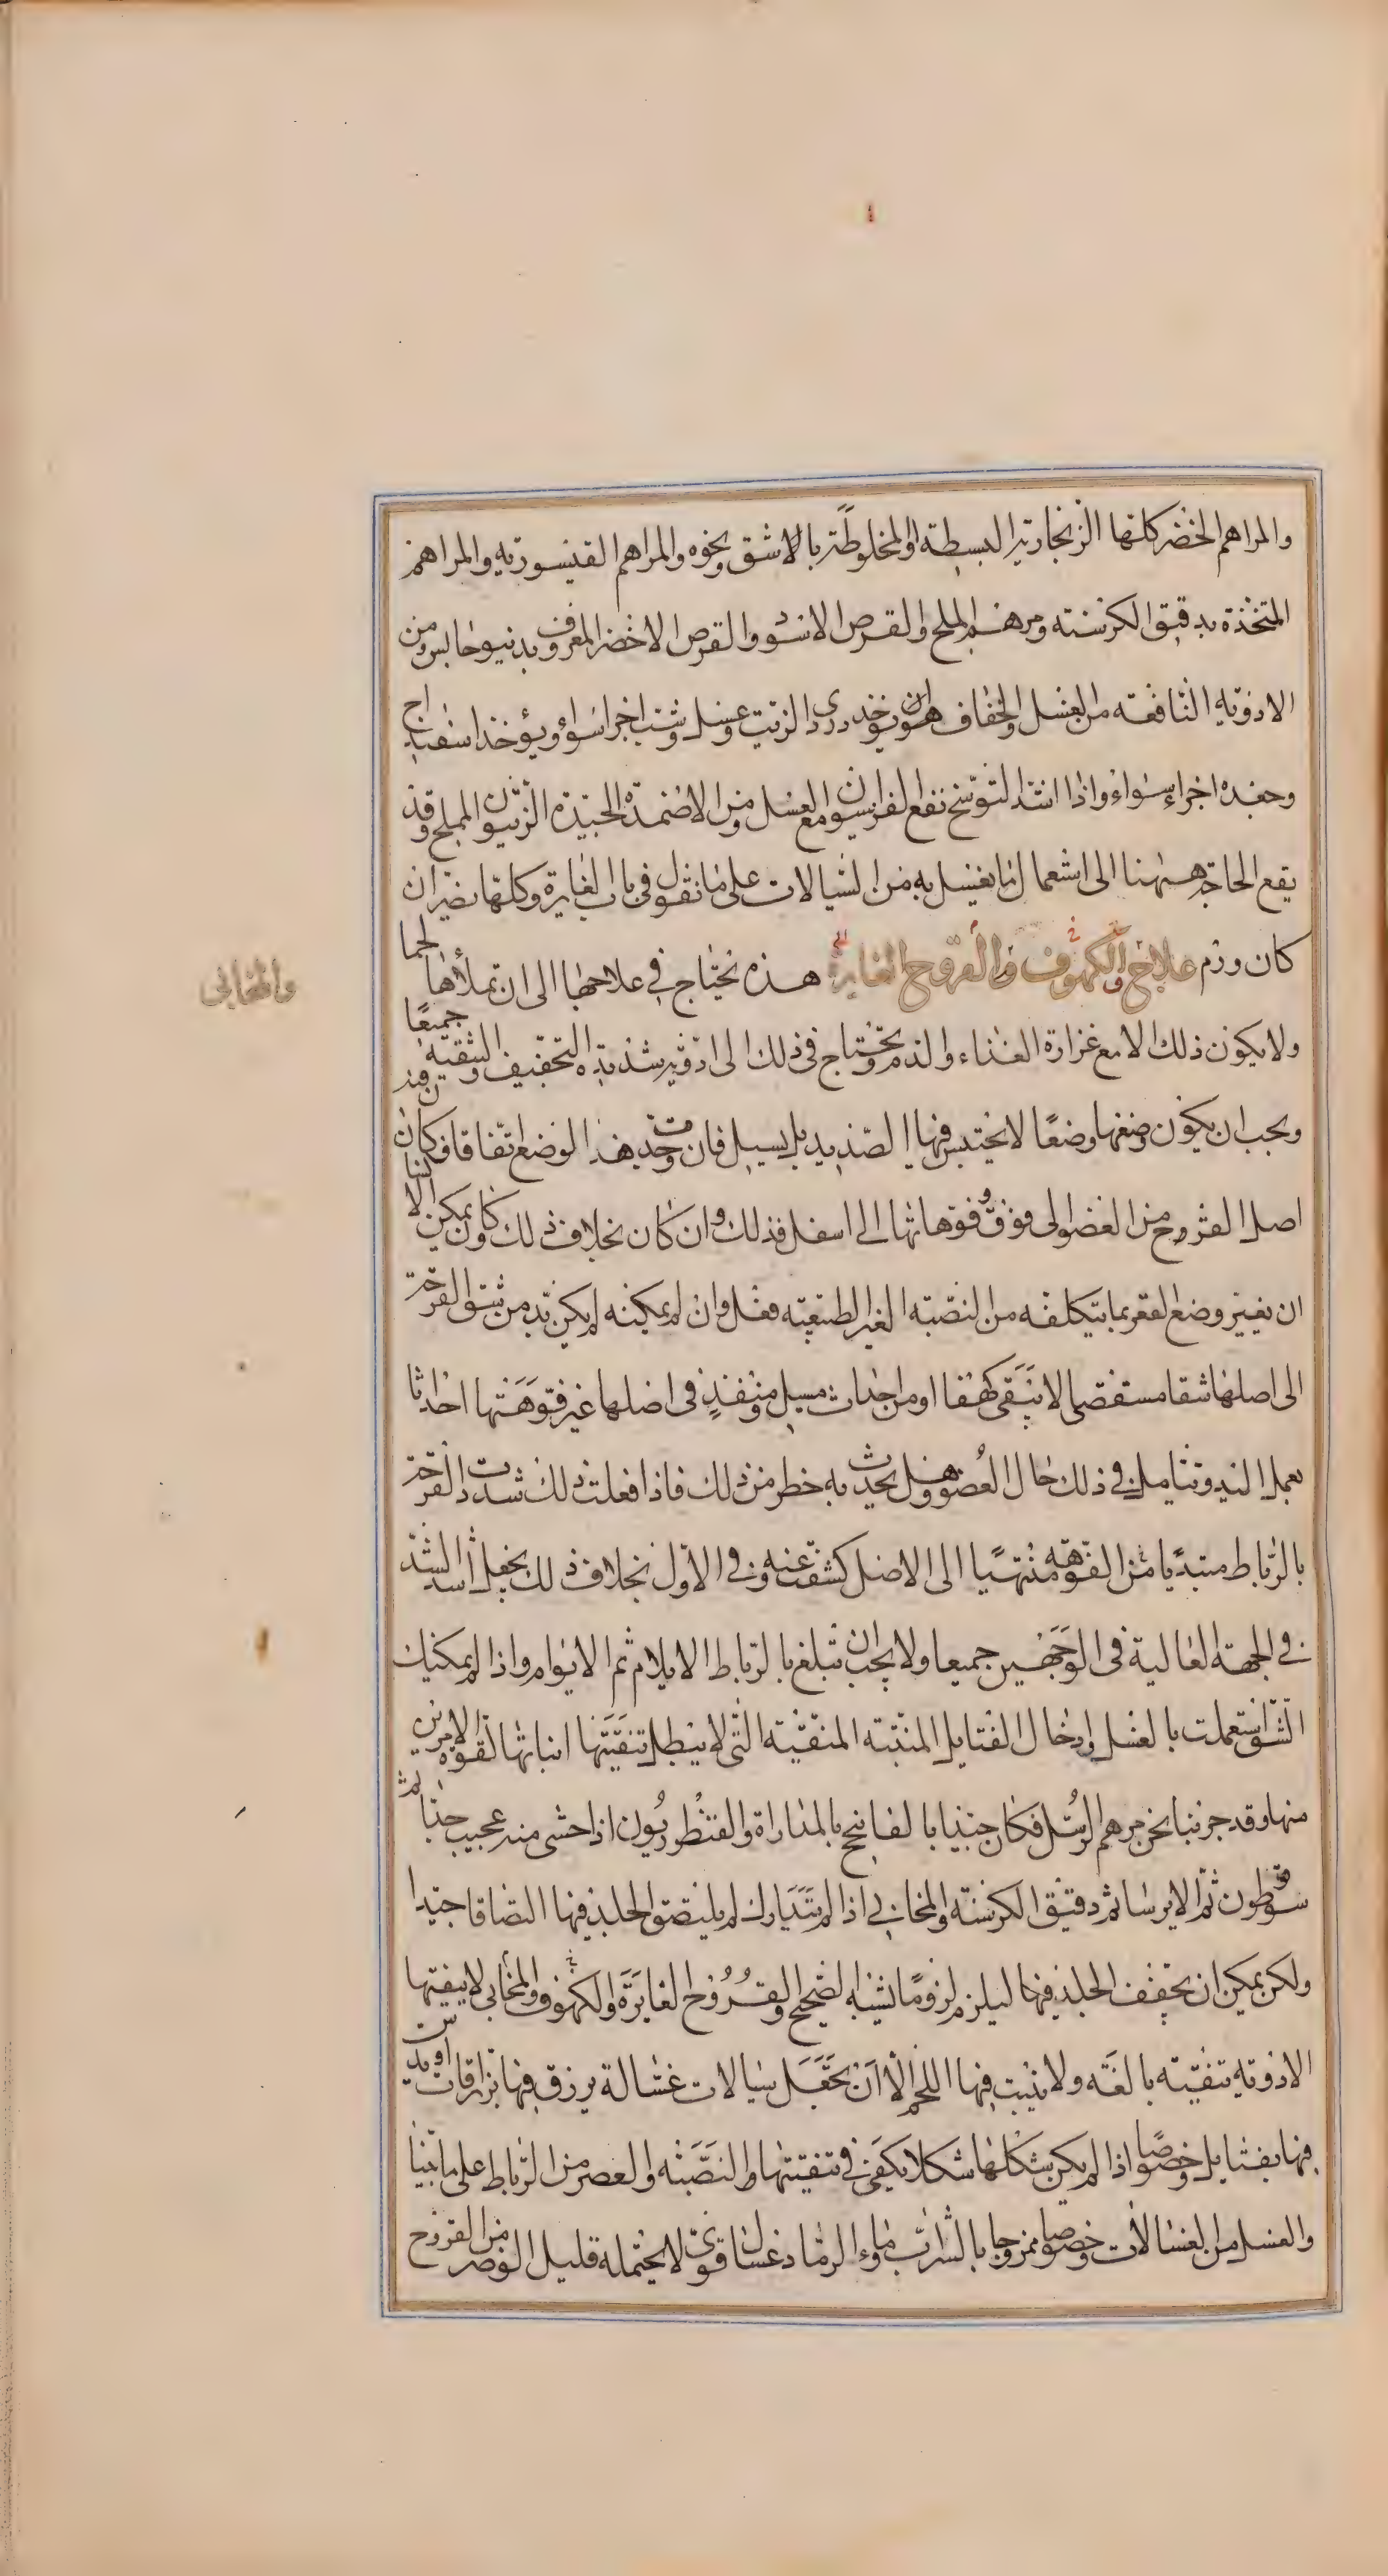 والمراهم الخضر كلها الزنجارية البسيطة او المخلوطة بالاشق ونحوه والمراهم القيسورية والمراهم
المتخذة بدقيق الكرسنة ومرهم الملح والقرص الاسود والقرص الاخضر المعروف بدنيوحالس ومن
الادوية النافعة من العسل والخفاف هو ان يوخذ دردى الزيت وعسل وشب اجزاء سواء ويؤخذ اسفيداج
وجعده اجزاء سواء واذا اشتد التوسخ نفع الفراسيون مع العسل ومن الاضمدة الجيدة الزيتون المملح وقد
يقع الحاجة ههنا الى استعمال ما يغسل به من السيالات على ما نقول فى باب الغايرة وكلها يضر ان
كان ورم علاج الكهوف والقروح الغايرة هذه تحتاج فى علاجها الى ان تملأها لحما
والمخابى
ولا يكون ذلك الا مع غزارة الغذاء والدم وتحتاج فى ذلك الى ادوية شديدة التجفيف والتنقية جميعا
ويجب ان يكون وضعها وضعا لا يحتبس فيها الصديد بل يسيل فان وجدت هذا الوضع اتفاقا فكان
اصل القروح من العضو الى فوق وفوهاتها الى اسفل فذلك وان كان بخلاف ذلك وكان يمكن
ان يغير وضع القعر بما يتكلفه من النصبة الغير الطبيعية فعل وان لم يمكنه لم يكن بد من شق القرحة
الى اصلها شقا مستقصى لا يبقى كهفا او من احداث مسيل ومنفذ فى اصلها غير فوهتها احداثا
بعمل اليد وتتامل فى ذلك حال العضو وهل يحدث به خطر من ذلك فاذا فعلت ذلك شددت القرحة
بالرباط مبتديا من الفوهة منتهيا الى الاصل كشفت عنه وفى الاول بخلاف ذلك يجعل اشد الشد
فى الجهة العالية فى الوجهين جميعا ولا يجب ان تبلغ بالرباط الايلام ثم الايرام واذا لم يمكنك
الشق استعملت بالغسل وادخال الفتايل المنبتة المنقية التى لا يبطل تنقيتها انباتها لقوة الامرين
منها وقد جربنا نحن مرهم الرسل فكان جيدا بالفا نجح بالمداراة والقنطوريون اذا حشى منه عجيب جدا
سوقوطون ثم الايرسا ثم دقيق الكرسنة والمخابى اذا لم تتدارك لم يلتصق الجلد فيها التصاقا جيدا
ولكن يمكن ان يجفف الجلد فيها ليلزم لزوما يشبه الصحيح والقروح الغايرة والكهوف والمخابى لا ينقيها
الادوية تنقية بالغة ولا ينبت فيها اللحم الا ان تجعل سيالات غسالة يزرق فيها بزراقات او يدس
فيها بفتايل وخصوصا اذا لم يكن شكلها شكلا يكفى فى تنقيتها والنصبة والعصر من الرباط على ما بينا
والعسل من الغسالات وخصوصا ممزوجا بالشراب وماء الرماد غسال قوى لا يحتمله قليل الوضر من القروح